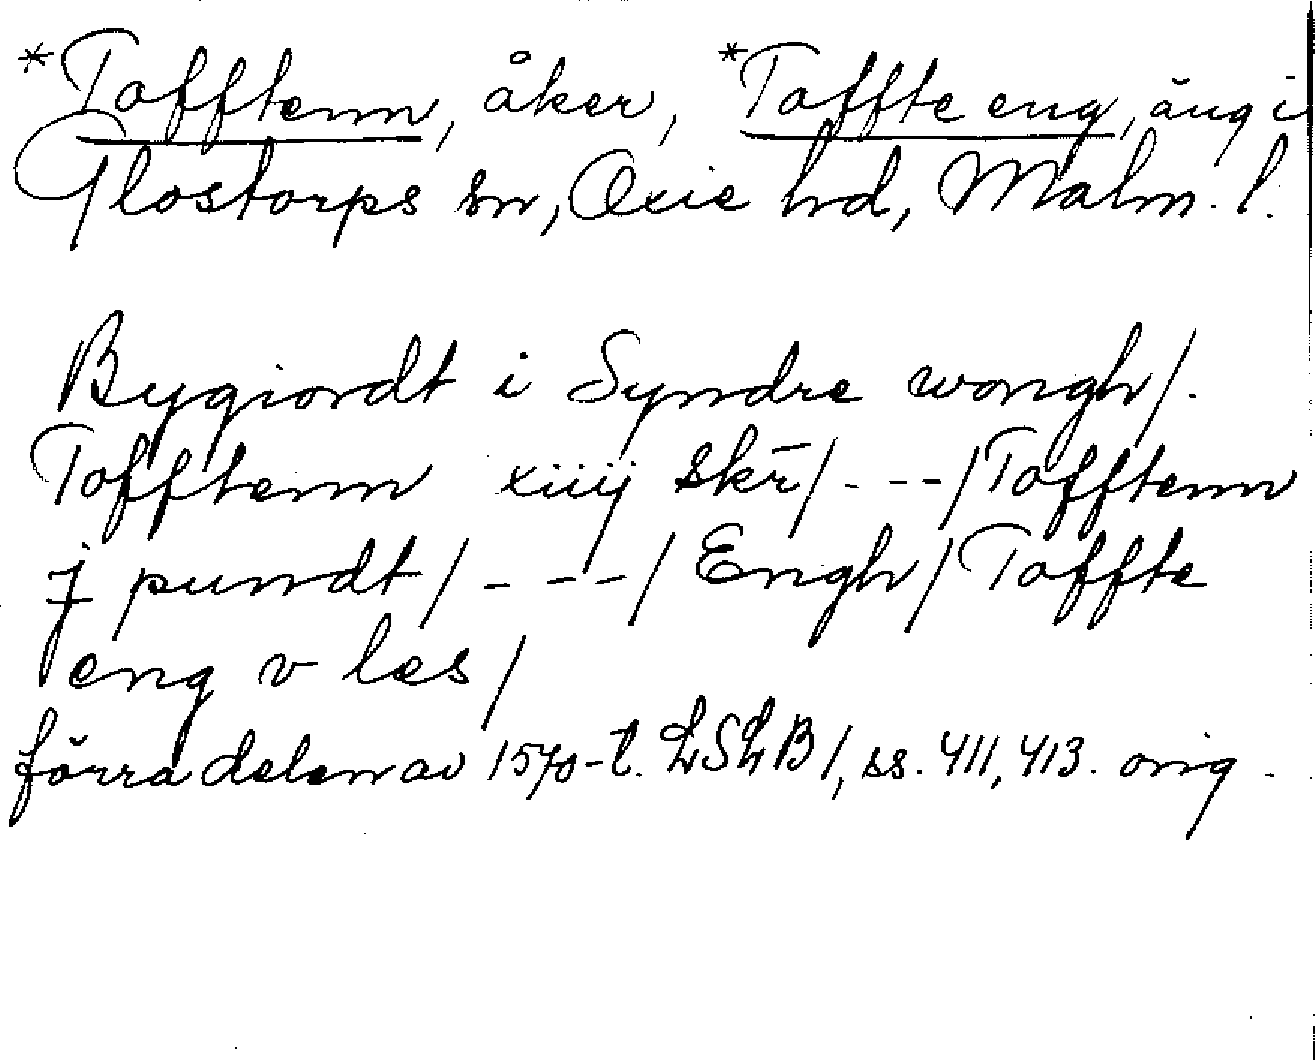 *Tofftenn, åker, *Toffte eng, äng i
Glostorps sn, Oxie hd, Malm. l.
Bygiordt i Syndre wongh/.
Tofftenn xiiij skr̄/ - - - / Tofftenn
j pundt/ - - - / Engh/ Toffte
eng v les/
förra delen av 1570-t. LSLB/, ss. 411, 413. orig.